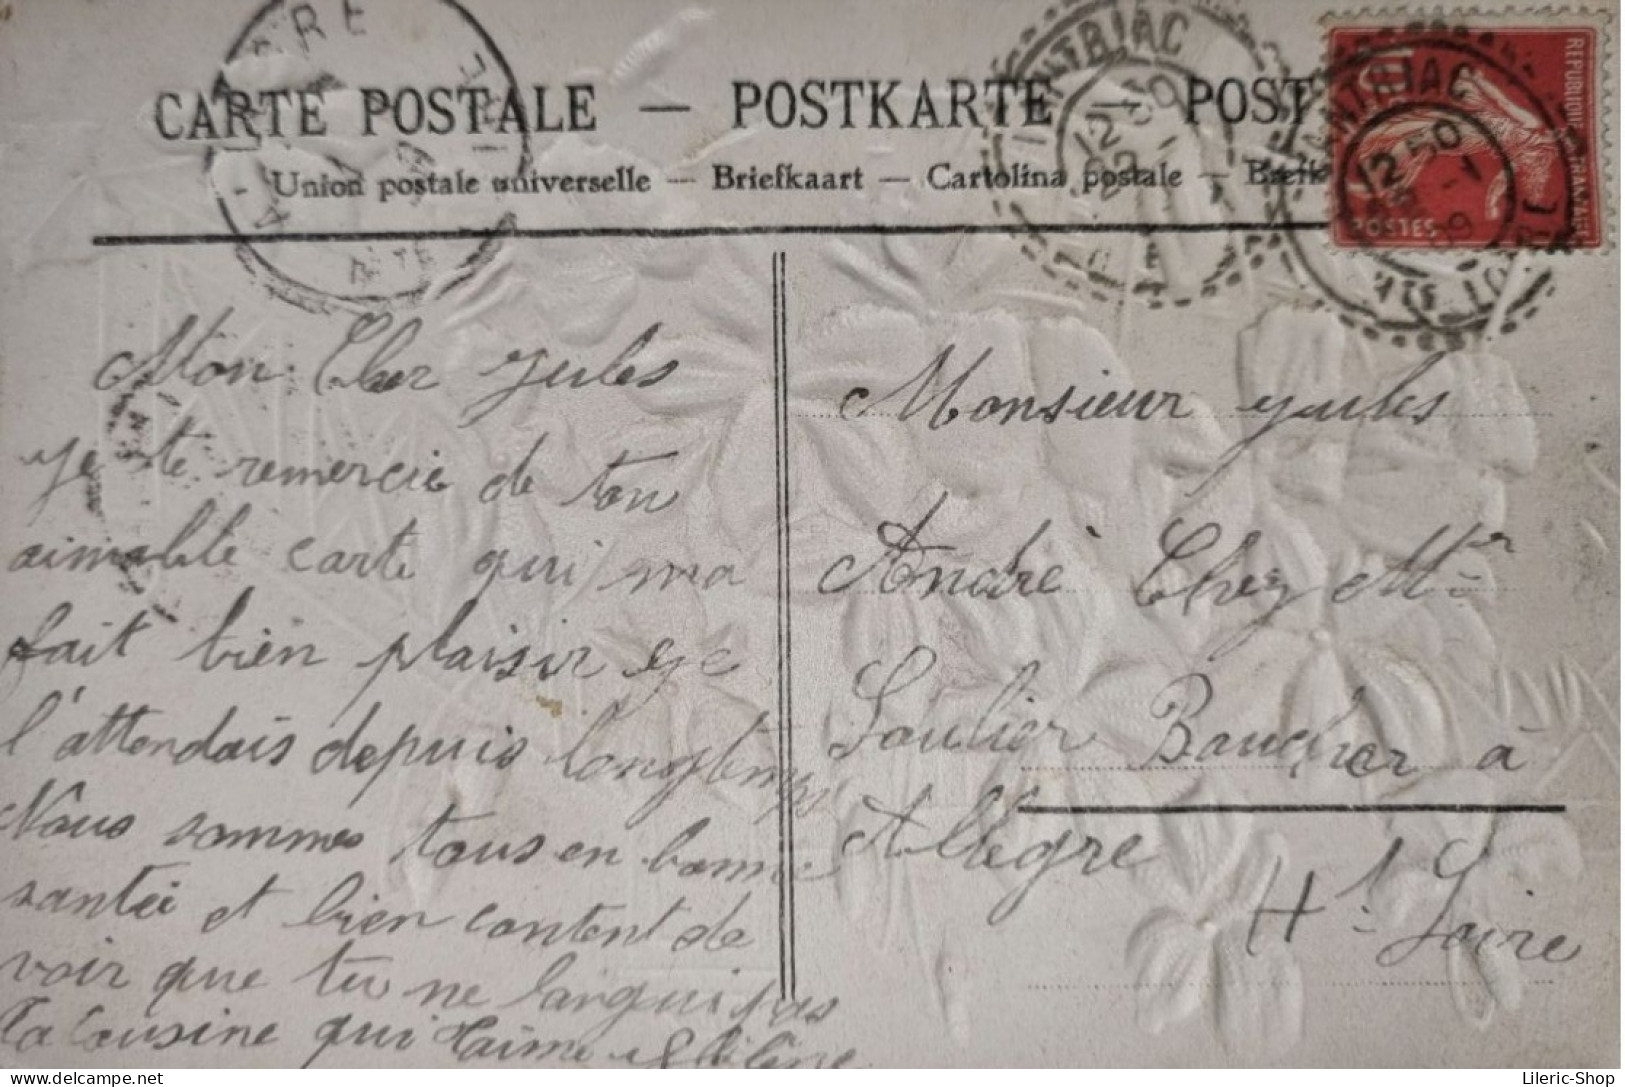 CARTE POSTALE — POSTKARTE — POST
Union postale universelle — Briefkaart — Cartolina postale — Briefk
REPUBLIQUE FRANÇAISE
10
POSTES
12 50
12 50
LOIRE
Mon Cher Jules
je te remercie de ton
aimable carte qui ma
fait bien plaisir je
l'attendais depuis longtemps
Nous sommes tous en bonne
santée et bien content de
voir que tu ne langui pas
Ta Cousine qui t'aime
Monsieur Jules
André Chez Mr
Soulier Boucher à
Allègre
Hte Loire
Lileric-Shop